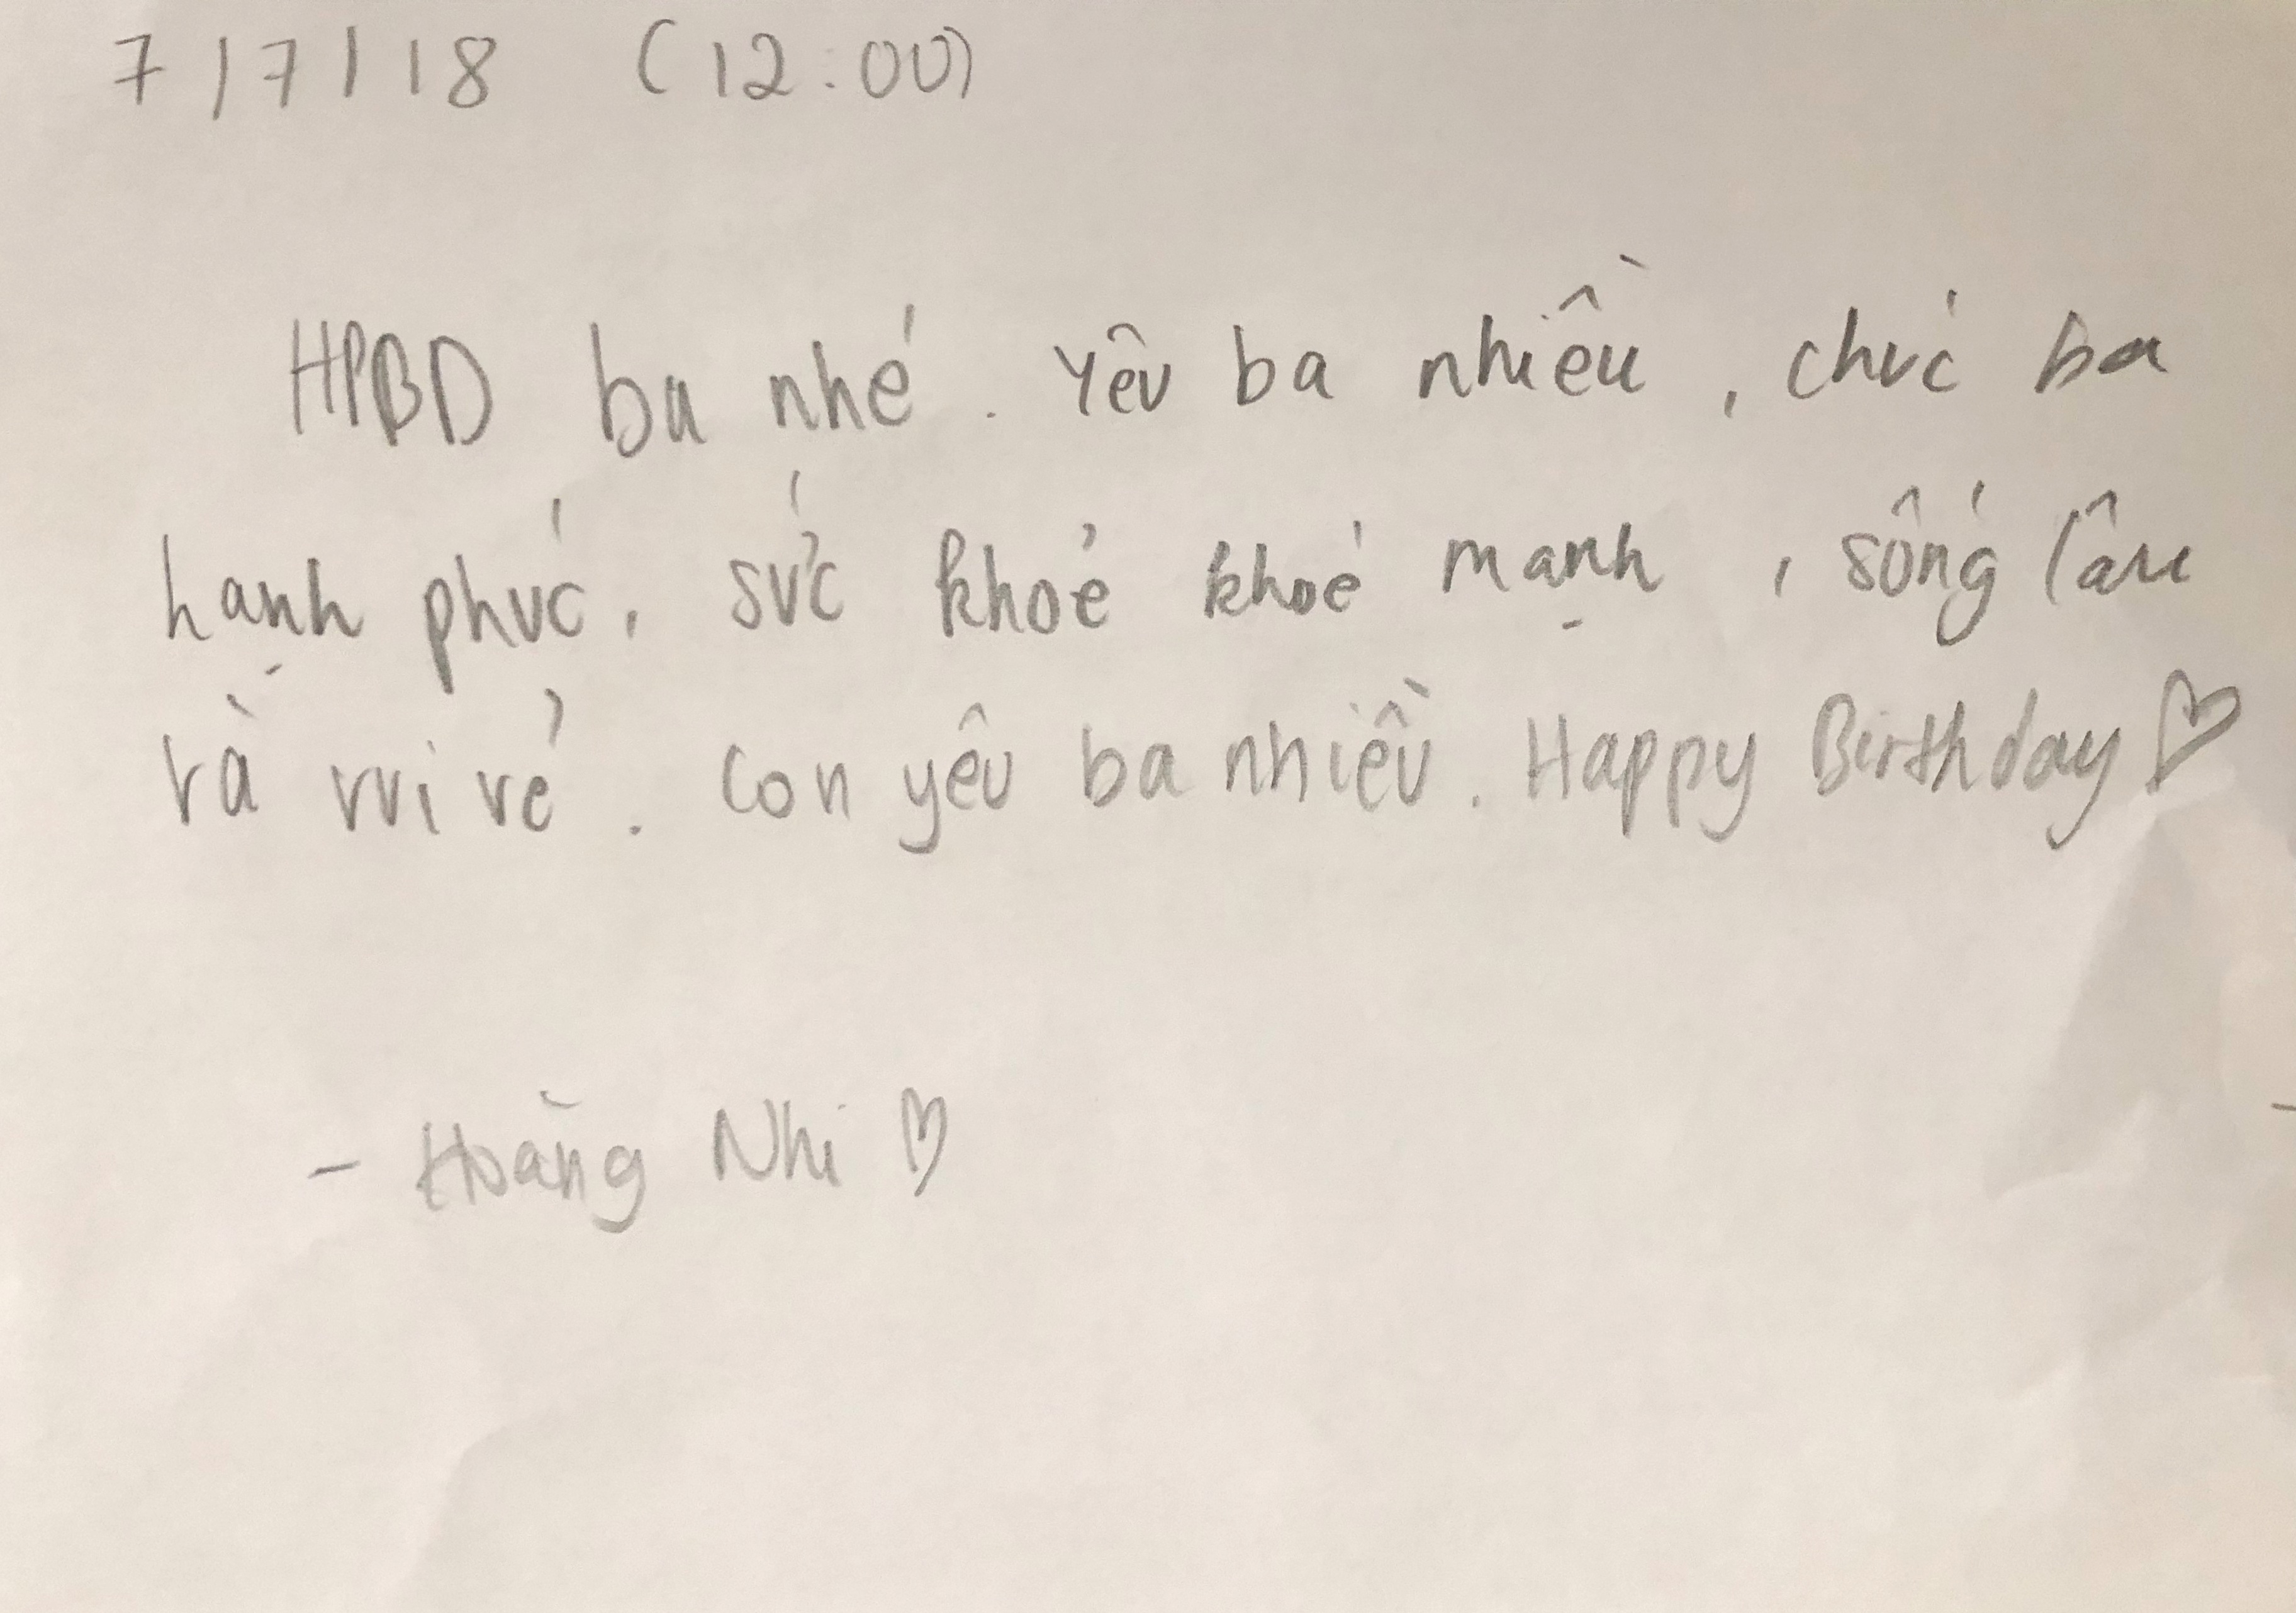 7/7/18 (12:00)
HPBD ba nhé. Yêu ba nhiều, chúc ba
hạnh phúc, sức khoẻ khoẻ mạnh, sống lâu
và vui vẻ. Con yêu ba nhiều. Happy Birthday ♡
- Hoàng Nhi ♡